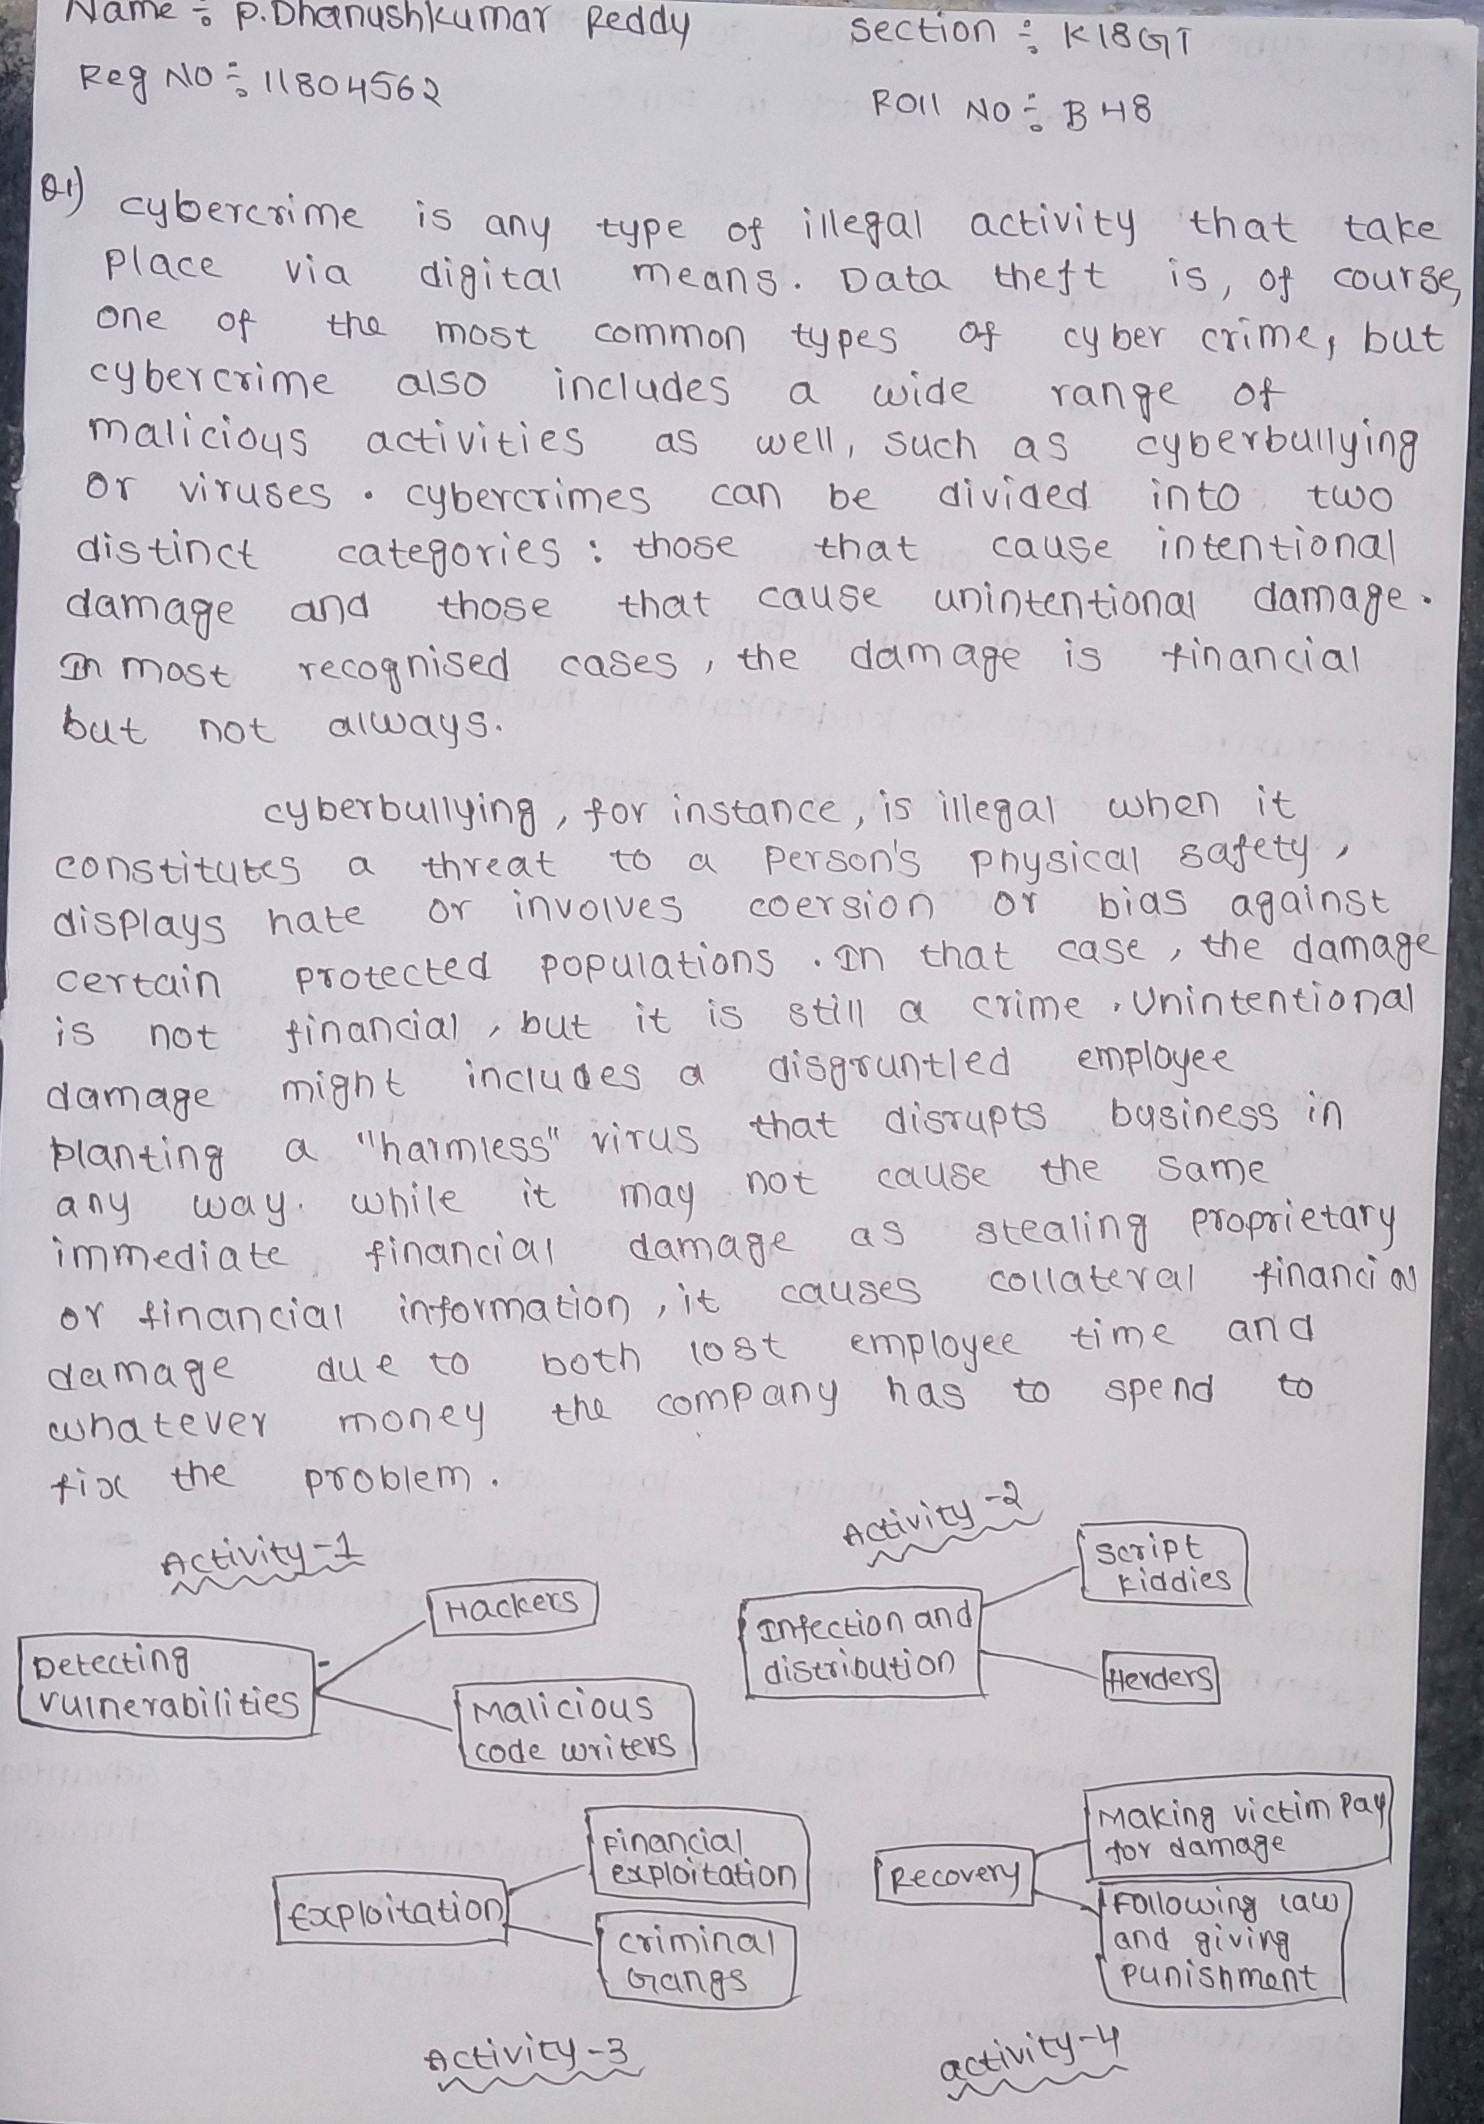 Name : P.Dhanushkumar Reddy
Section : K18GT
Reg NO : 11804562
Roll NO : B48
Q1)
cybercrime is any type of illegal activity that take
place via digital means. Data theft is, of course,
one of the most common types of cyber crime, but
cybercrime also includes a wide range of
malicious activities as well, such as cyberbullying
or viruses. cybercrimes can be divided into two
distinct categories : those that cause intentional
damage and those that cause unintentional damage.
In most recognised cases, the damage is financial
but not always.
cyberbullying, for instance, is illegal when it
constitutes a threat to a person's physical safety,
displays hate or involves coersion or bias against
certain protected populations. In that case, the damage
is not financial, but it is still a crime. Unintentional
damage might includes a disgruntled employee
planting a "harmless" virus that disrupts business in
any way. while it may not cause the same
immediate financial damage as stealing proprietary
or financial information, it causes collateral financial
damage due to both lost employee time and
whatever money the company has to spend to
fix the problem.
Activity-1
Detecting
vulnerabilities
Hackers
Malicious
code writers
Activity-2
Infection and
distribution
Script
kiddies
Herders
Exploitation
Financial
exploitation
Criminal
Gangs
Activity-3
Recovery
Making victim pay
for damage
Following law
and giving
punishment
activity-4